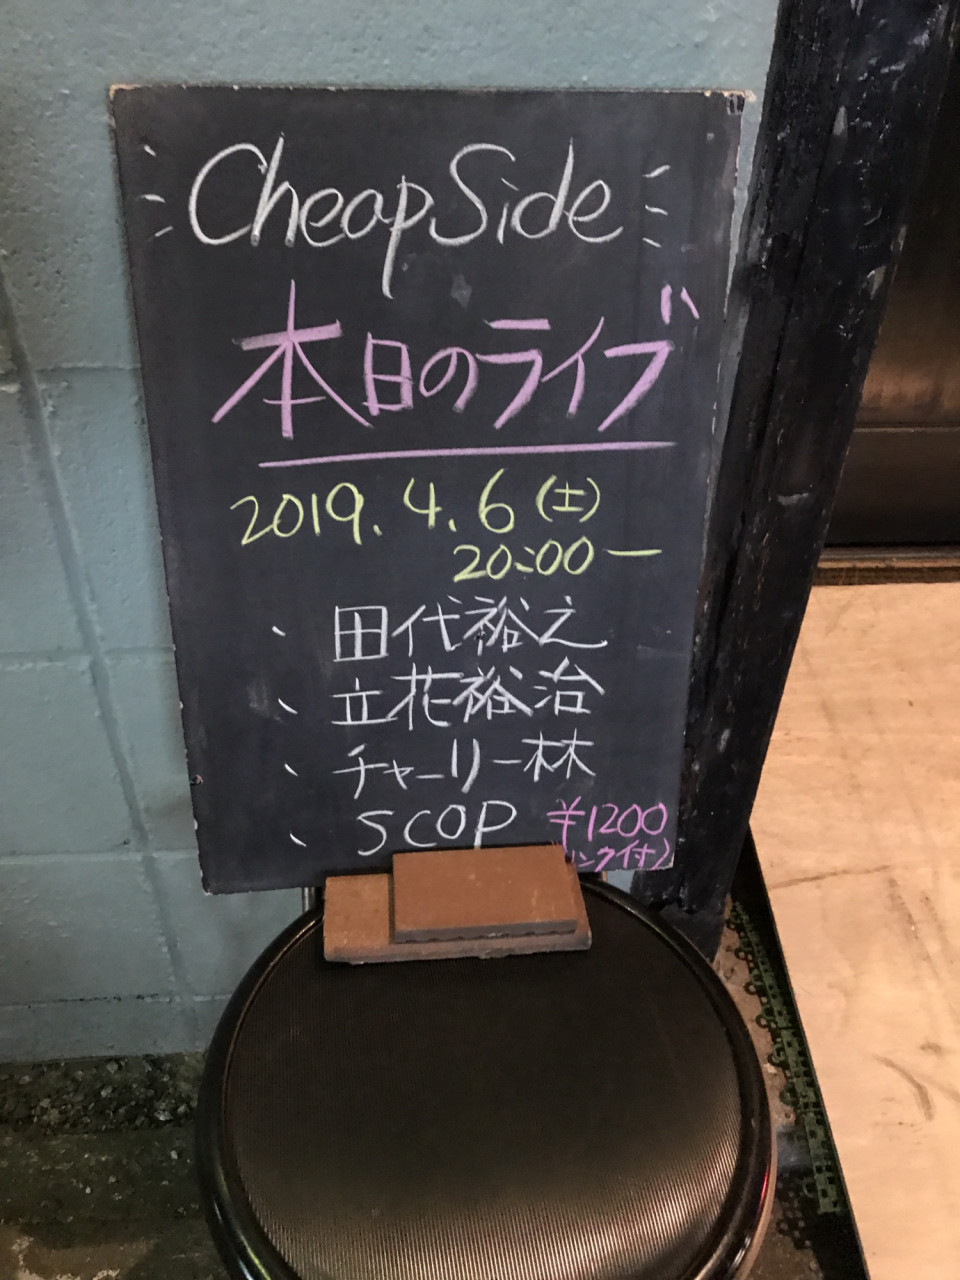 CheapSide
本日のライブ
2019.4.6(土)
20:00ー
、田代裕之
、立花裕治
、チャーリー林
、SCOP
¥1200
ンク付)